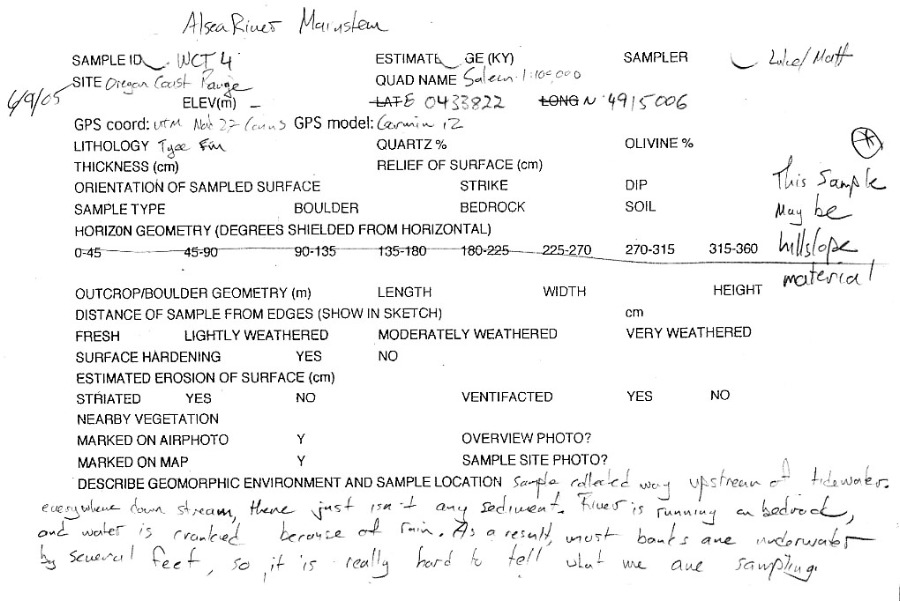 Alsea River Mainstem
SAMPLE ID WCT 4 ESTIMATE GE (KY) SAMPLER Luke/Matt
SITE Oregon Coast Range QUAD NAME Salem 1:100,000
6/9/05
ELEV(m) – LAT E 0433822 LONG N 4915006
GPS coord: UTM Nad 27 Conus GPS model: Garmin 12
LITHOLOGY Tyee Fm QUARTZ % OLIVINE %
THICKNESS (cm) RELIEF OF SURFACE (cm)
ORIENTATION OF SAMPLED SURFACE STRIKE DIP
SAMPLE TYPE BOULDER BEDROCK SOIL
HORIZON GEOMETRY (DEGREES SHIELDED FROM HORIZONTAL)
0-45 45-90 90-135 135-180 180-225 225-270 270-315 315-360
This Sample
May be
hillslope
material
OUTCROP/BOULDER GEOMETRY (m) LENGTH WIDTH HEIGHT
DISTANCE OF SAMPLE FROM EDGES (SHOW IN SKETCH) cm
FRESH LIGHTLY WEATHERED MODERATELY WEATHERED VERY WEATHERED
SURFACE HARDENING YES NO
ESTIMATED EROSION OF SURFACE (cm)
STRIATED YES NO VENTIFACTED YES NO
NEARBY VEGETATION
MARKED ON AIRPHOTO Y OVERVIEW PHOTO?
MARKED ON MAP Y SAMPLE SITE PHOTO?
DESCRIBE GEOMORPHIC ENVIRONMENT AND SAMPLE LOCATION Sample collected way upstream of tidewater.
everywhere down stream, there just isn't any sediment. River is running on bedrock,
and water is cranked because of rain. As a result, most banks are underwater
by several feet, so it is really hard to tell what we are sampling.